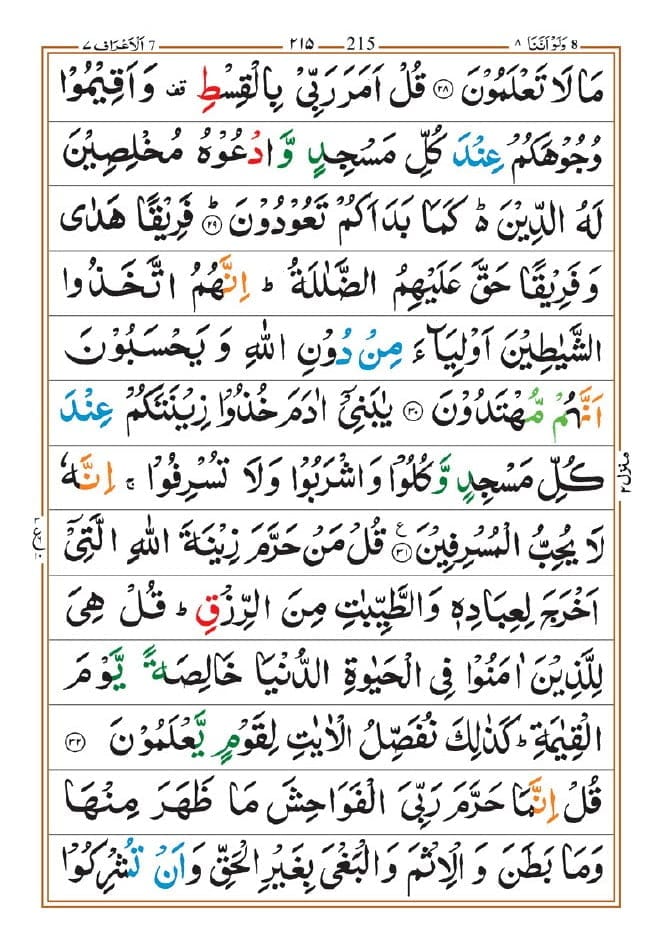 8 وَلَوْ اَنَّنَا ٨ 215 ٢١٥ 7 اَلْاَعْرَاف ٧
مَا لَا تَعْلَمُوْنَ ﴿۲۸﴾ قُلْ اَمَرَ رَبِّیْ بِالْقِسْطِ قف وَ اَقِیْمُوْا
وُجُوْهَكُمْ عِنْدَ كُلِّ مَسْجِدٍ وَّ ادْعُوْهُ مُخْلِصِیْنَ
لَهُ الدِّیْنَ ؕ كَمَا بَدَاَكُمْ تَعُوْدُوْنَ ؕ﴿۲۹﴾ فَرِیْقًا هَدٰی
وَ فَرِیْقًا حَقَّ عَلَیْهِمُ الضَّلٰلَةُ ؕ اِنَّهُمُ اتَّخَذُوا
الشَّیٰطِیْنَ اَوْلِیَآءَ مِنْ دُوْنِ اللّٰهِ وَ یَحْسَبُوْنَ
اَنَّهُمْ مُّهْتَدُوْنَ ﴿۳۰﴾ یٰبَنِیْۤ اٰدَمَ خُذُوْا زِیْنَتَكُمْ عِنْدَ
كُلِّ مَسْجِدٍ وَّ كُلُوْا وَ اشْرَبُوْا وَ لَا تُسْرِفُوْا ۚ اِنَّهٗ
منزل ۲
لَا یُحِبُّ الْمُسْرِفِیْنَ ﴿۳۱﴾ ع قُلْ مَنْ حَرَّمَ زِیْنَةَ اللّٰهِ الَّتِیْۤ
اَخْرَجَ لِعِبَادِهٖ وَ الطَّیِّبٰتِ مِنَ الرِّزْقِ ؕ قُلْ هِیَ
لِلَّذِیْنَ اٰمَنُوْا فِی الْحَیٰوةِ الدُّنْیَا خَالِصَةً یَّوْمَ
الْقِیٰمَةِ ؕ كَذٰلِكَ نُفَصِّلُ الْاٰیٰتِ لِقَوْمٍ یَّعْلَمُوْنَ ﴿۳۲﴾
قُلْ اِنَّمَا حَرَّمَ رَبِّیَ الْفَوَاحِشَ مَا ظَهَرَ مِنْهَا
وَ مَا بَطَنَ وَ الْاِثْمَ وَ الْبَغْیَ بِغَیْرِ الْحَقِّ وَ اَنْ تُشْرِكُوْا